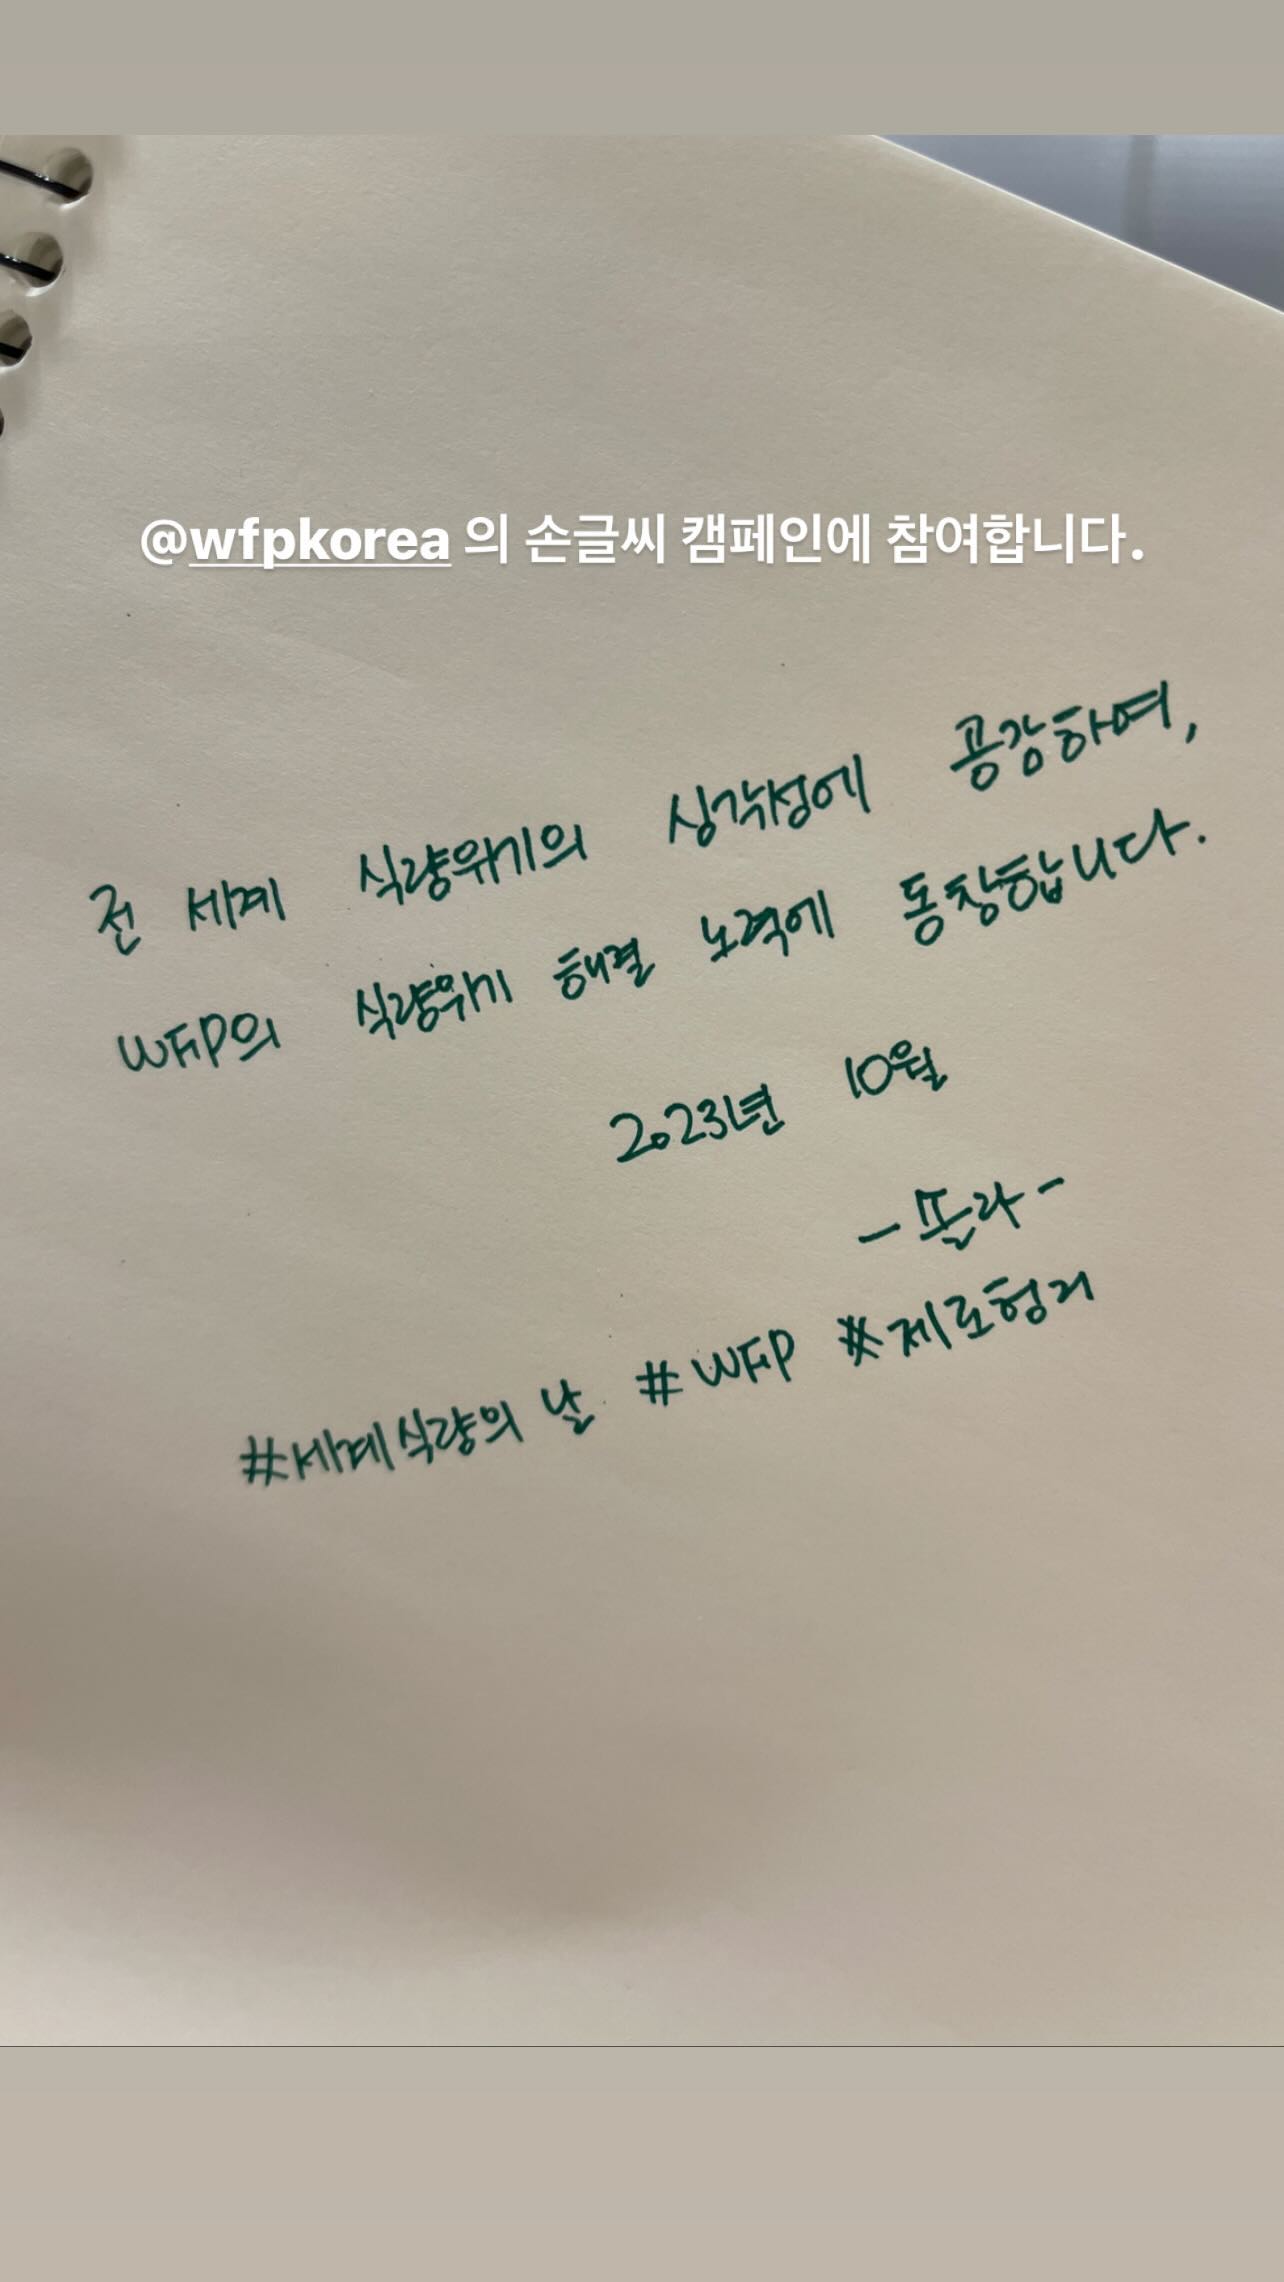 @wfpkorea 의 손글씨 캠페인에 참여합니다.
전 세계 식량위기의 심각성에 공감하여,
WFP의 식량위기 해결 노력에 동참합니다.
2023년 10월
- 똘라 -
#세계식량의 날 #WFP #제로헝거